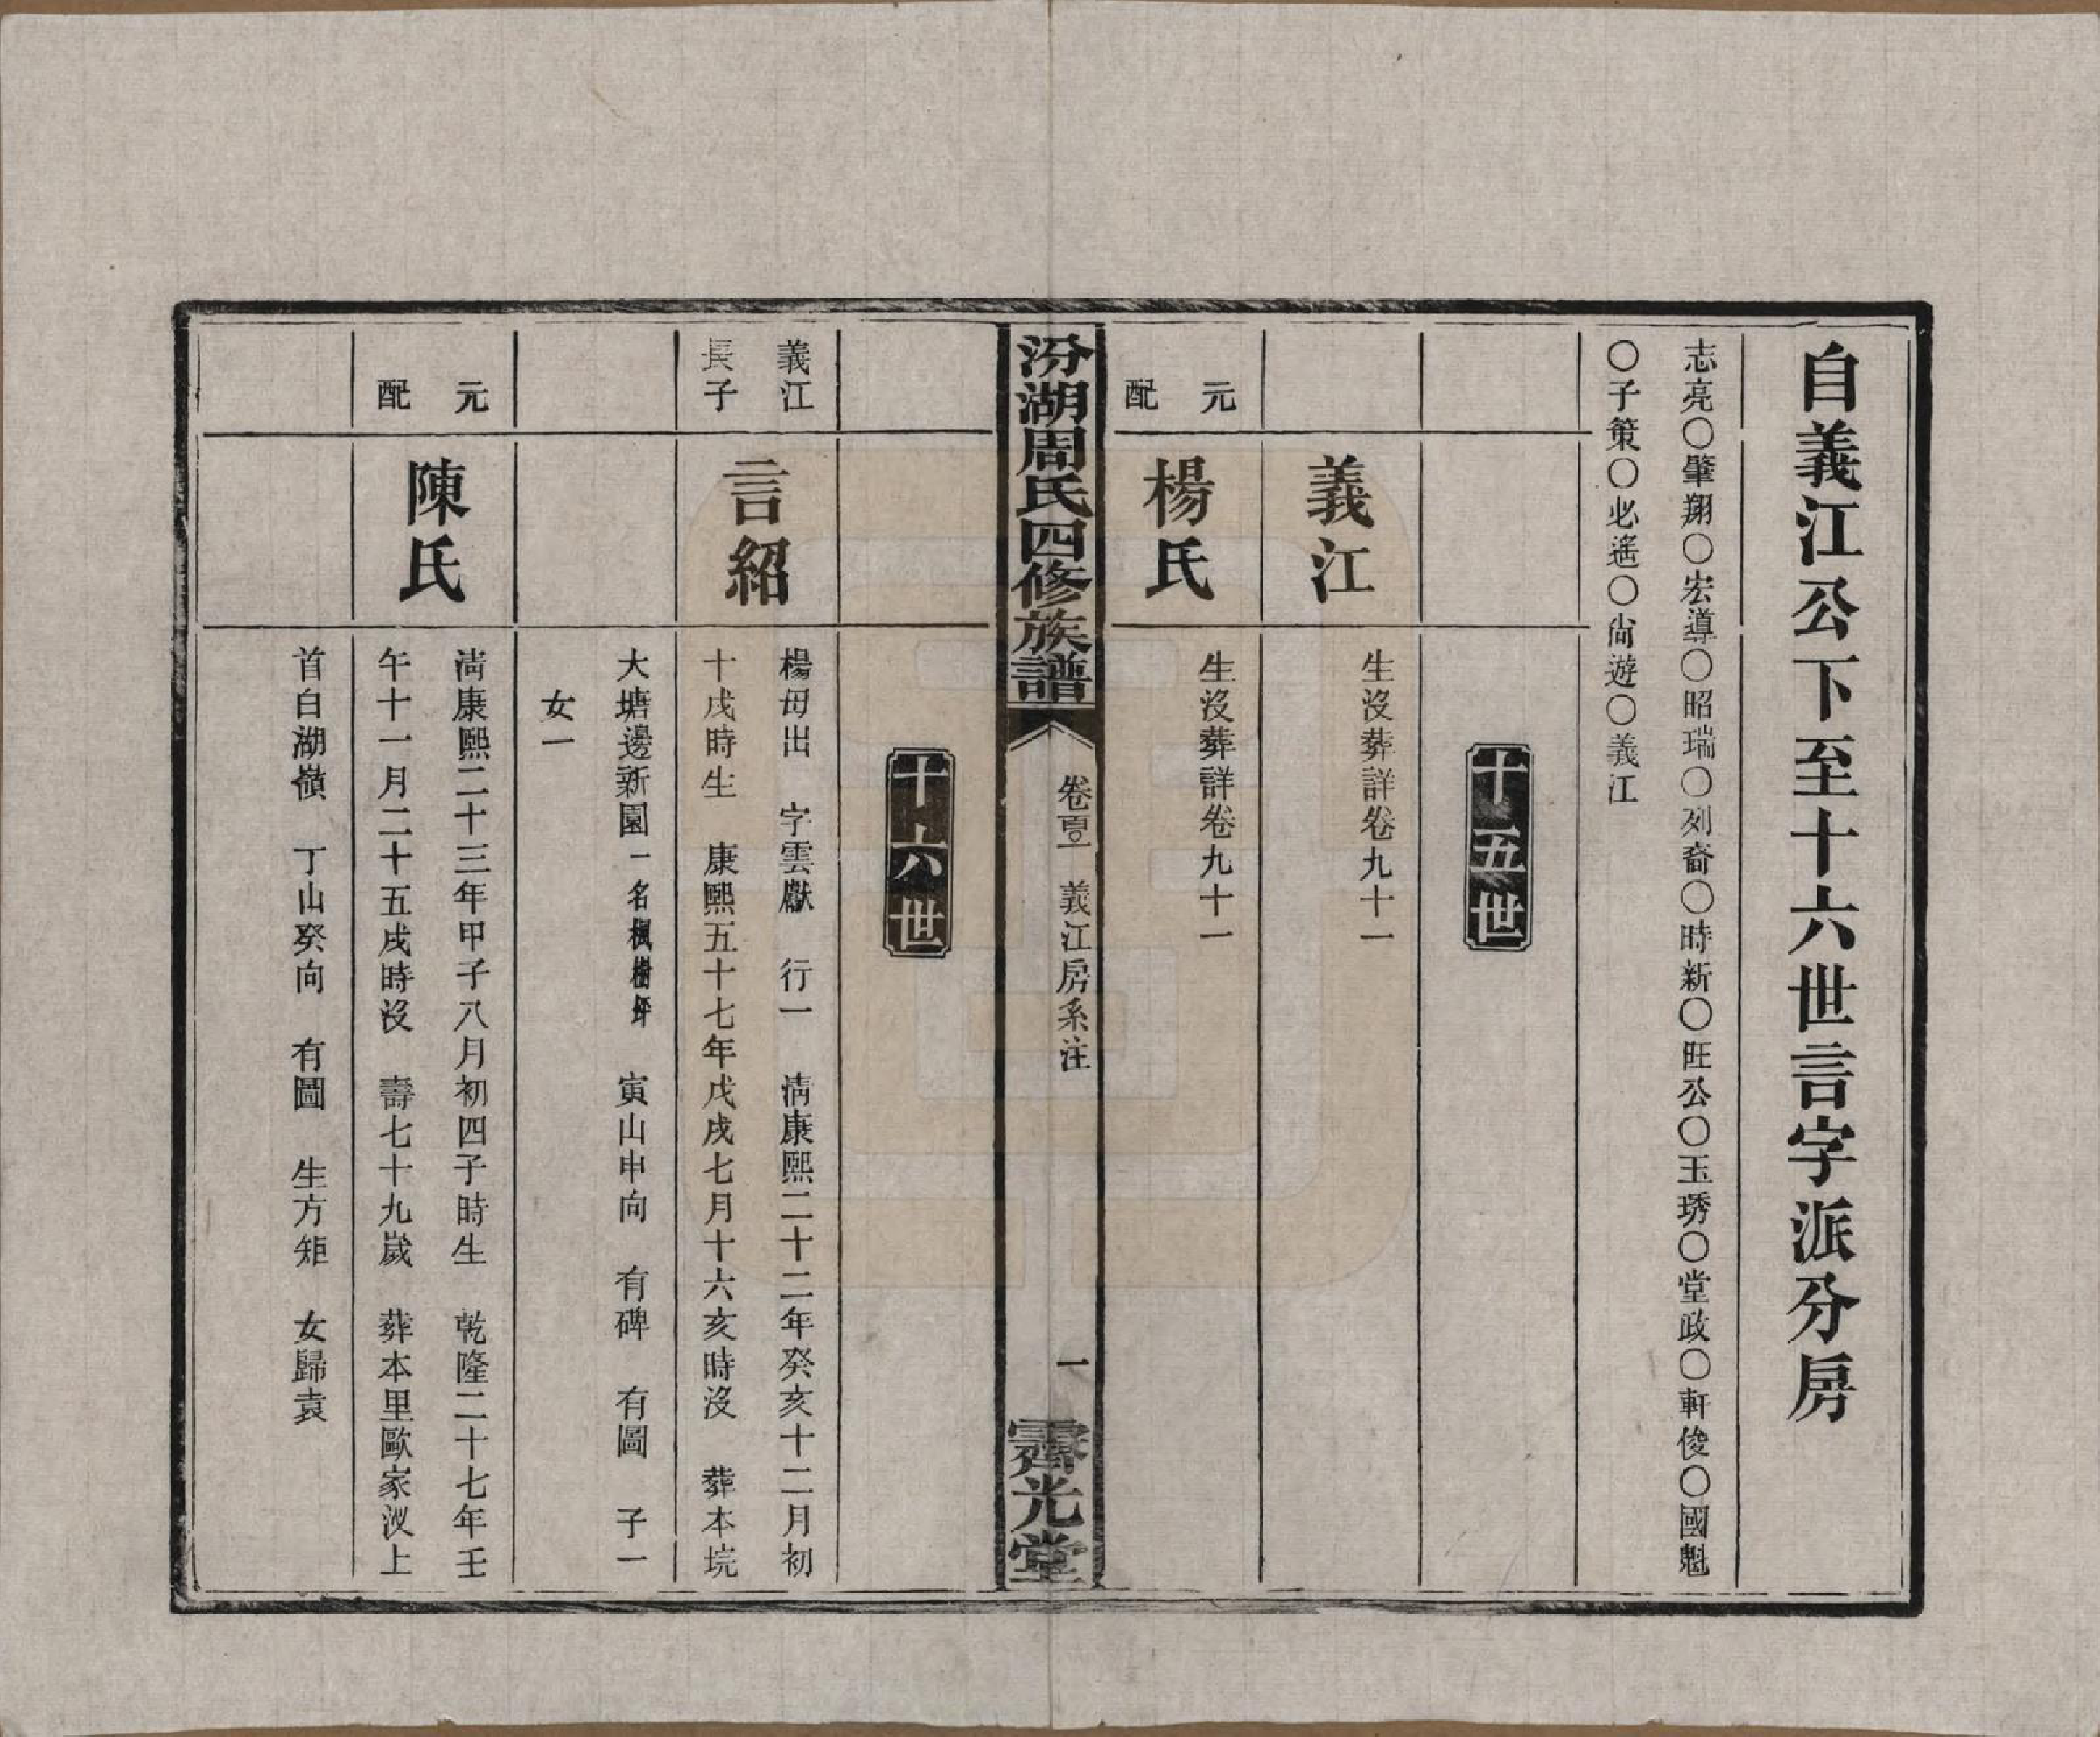 自義江公下至十六世言字派分房
志亮〇肇翔〇宏導〇昭瑞〇列裔〇時新〇旺公〇玉琇〇堂政〇軒俊〇國魁
〇子策〇必遙〇尚遊〇義江
十五世
義江
生沒葬詳卷九十一
元配
楊氏
生沒葬詳卷九十一
汾湖周氏四修族譜
卷百〇一 義江房系注
一
霽光堂
十六世
義江
長子
言紹
楊母出 字雲獻 行一 淸康熙二十二年癸亥十二月初
十戌時生 康熙五十七年戊戌七月十六亥時沒 葬本垸
大塘邊新園一名楓樹坪 寅山申向 有碑 有圖 子一
女一
元配
陳氏
淸康熙二十三年甲子八月初四子時生 乾隆二十七年壬
午十一月二十五戌時沒 壽七十九歲 葬本里歐家汊上
首白湖嶺 丁山癸向 有圖 生方矩 女歸袁